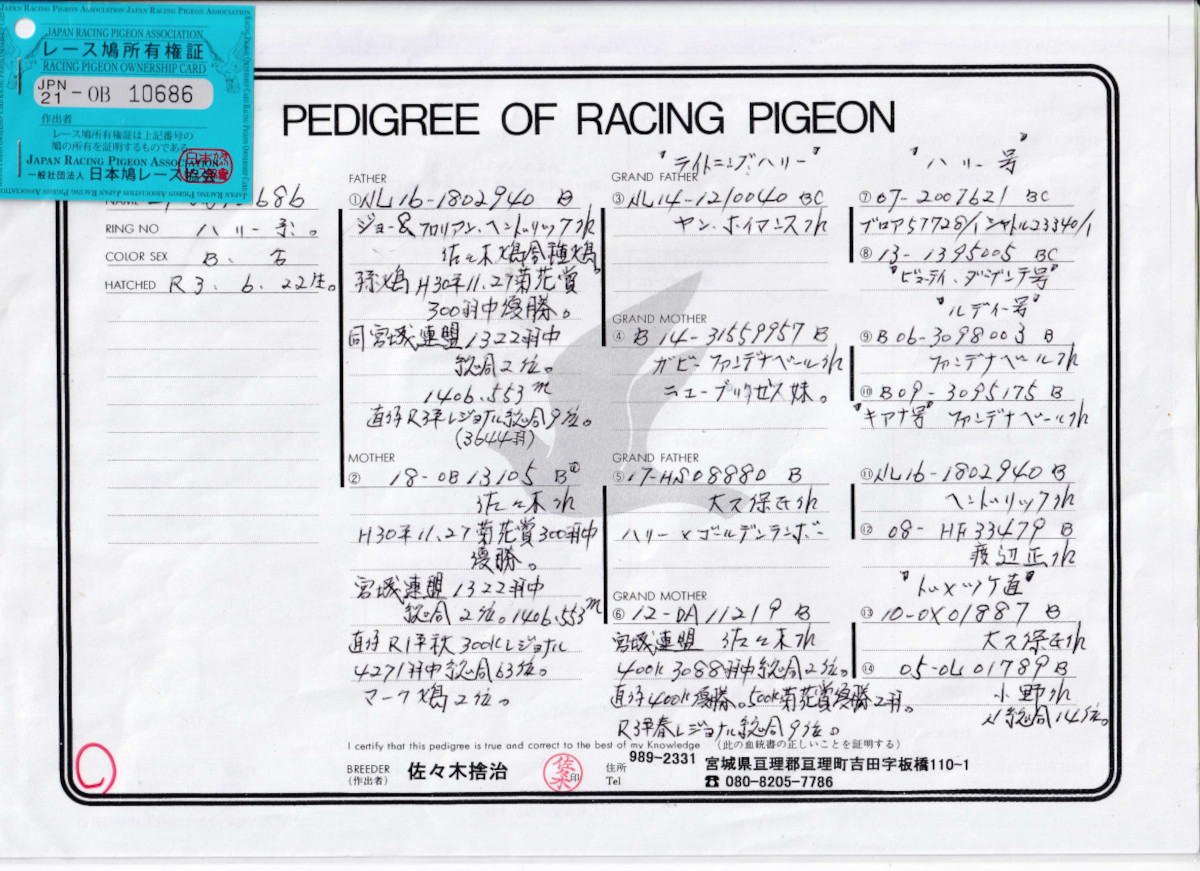 JAPAN RACING PIGEON ASSOCIATION JAPAN RACING PIGEON ASSOCIATION
JAPAN RACING PIGEON ASSOCIATION
レース鳩所有権証
RACING PIGEON OWNERSHIP CARD
JPN 21 - OB 10686
作出者
レース鳩所有権証は上記番号の
鳩の所有を証明するものである
JAPAN RACING PIGEON ASSOCIATION
一般社団法人 日本鳩レース協会
PEDIGREE OF RACING PIGEON
NAME
686
RING NO ハリー系。
COLOR SEX B.
HATCHED R3. 6. 22生。
FATHER
①NL16-1802940 B
ジョー&フロリアン.ヘンドリックス作
佐々木鳩舎種鳩
孫鳩 H30年11.27菊花賞
300羽中優勝。
同宮城連盟1322羽中
総合2位。
1406.553m
直仔R3年レジョナル総合9位。
(3644羽)
MOTHER
② 18-OB13105 B♀
佐々木作
H30年11.27菊花賞300羽中
優勝。
宮城連盟1322羽中
総合2位。1406.553m
直仔R1年秋300Kレジョナル
4271羽中総合63位。
マーク鳩2位。
"ライトニングハリー"
GRAND FATHER
③NL14-1210040 BC
ヤン.ホイマンス作
GRAND MOTHER
④ B 14-31559957 B
ガビーファンデナベール作
ニューブリクセス妹。
GRAND FATHER
⑤17-HS08880 B
大久保氏作
ハリー×ゴールデンランボー
GRAND MOTHER
⑥ 12-DA11219 B
宮城連盟 佐々木作
400K3088羽中総合2位。
直仔400K優勝。500K菊花賞優勝2羽。
R3年春レジョナル総合9位。
"ハリー号"
⑦ 07-2007621 BC
ブロア57728/1シャトル23340/1
⑧ 13-1395005 BC
"ビューティ.ダ
号"
"ルディー号"
⑨B06-3098003 B
ファンデナベール作
⑩B09-3095175 B
"キアナ号" ファンデナベール作
⑪NL16-1802940 B
ヘンドリックス作
⑫ 08-HF33479 B
渡辺正作
"トム×ツケ直"
⑬ 10-OX01887 B
大久保氏作
⑭ 05-OL01789 B
小野作
総合14位。
I certify that this pedigree is true and correct to the best of my Knowledge (此の血統書の正しいことを証明する)
BREEDER
(作出者)
佐々木捨治
佐々木 印
住所
Tel
989-2331 宮城県亘理郡亘理町吉田字板橋110-1
☎ 080-8205-7786